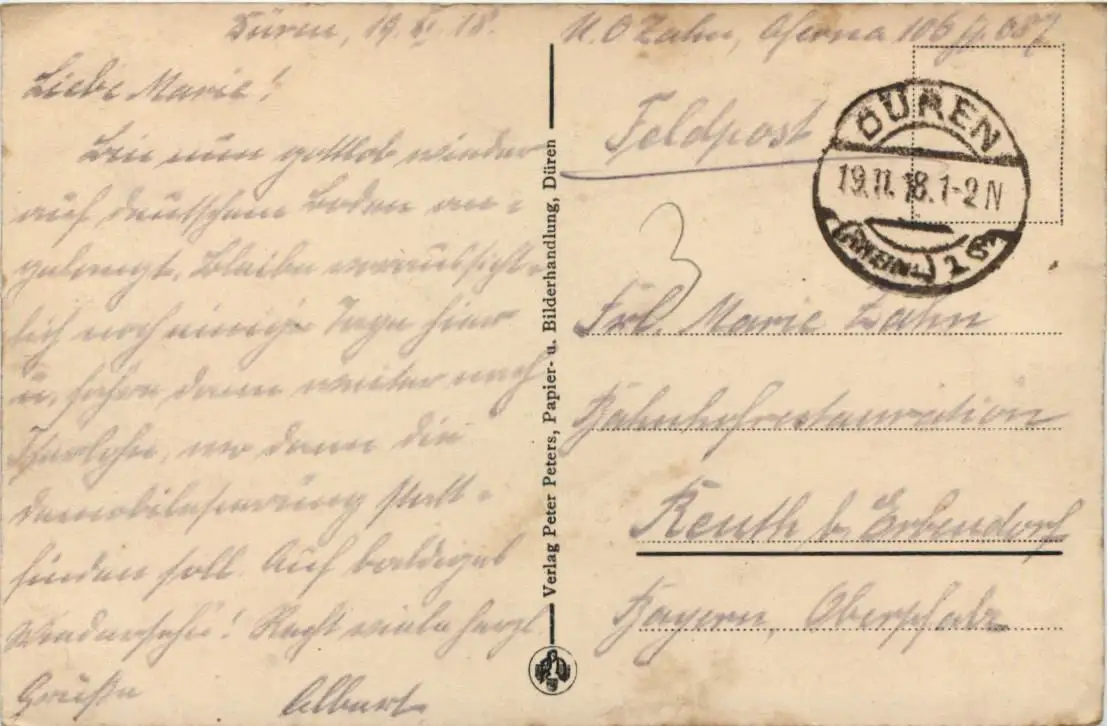 Düren, 19. XI. 18.
Liebe Marie!
Bin nun gottlob wieder
auf deutschem Boden an-
gelangt. Bleibe voraussicht-
lich noch einige Tage hier
u. fahre dann weiter nach
Iserlohn, wo dann die
Demobilisierung statt-
finden soll. Auf baldiges
Wiedersehn! Recht viele herzl
Grüße Albert
Verlag Peter Peters, Papier- u. Bilderhandlung, Düren
U.O Zahn,
Feldpost
DÜREN
19.11.18.1-2N
(RHEINL)
3
Frl. Marie Zahn
Bahnhofrestauration
Reuth b. Erbendorf
Bayern, Oberpfalz